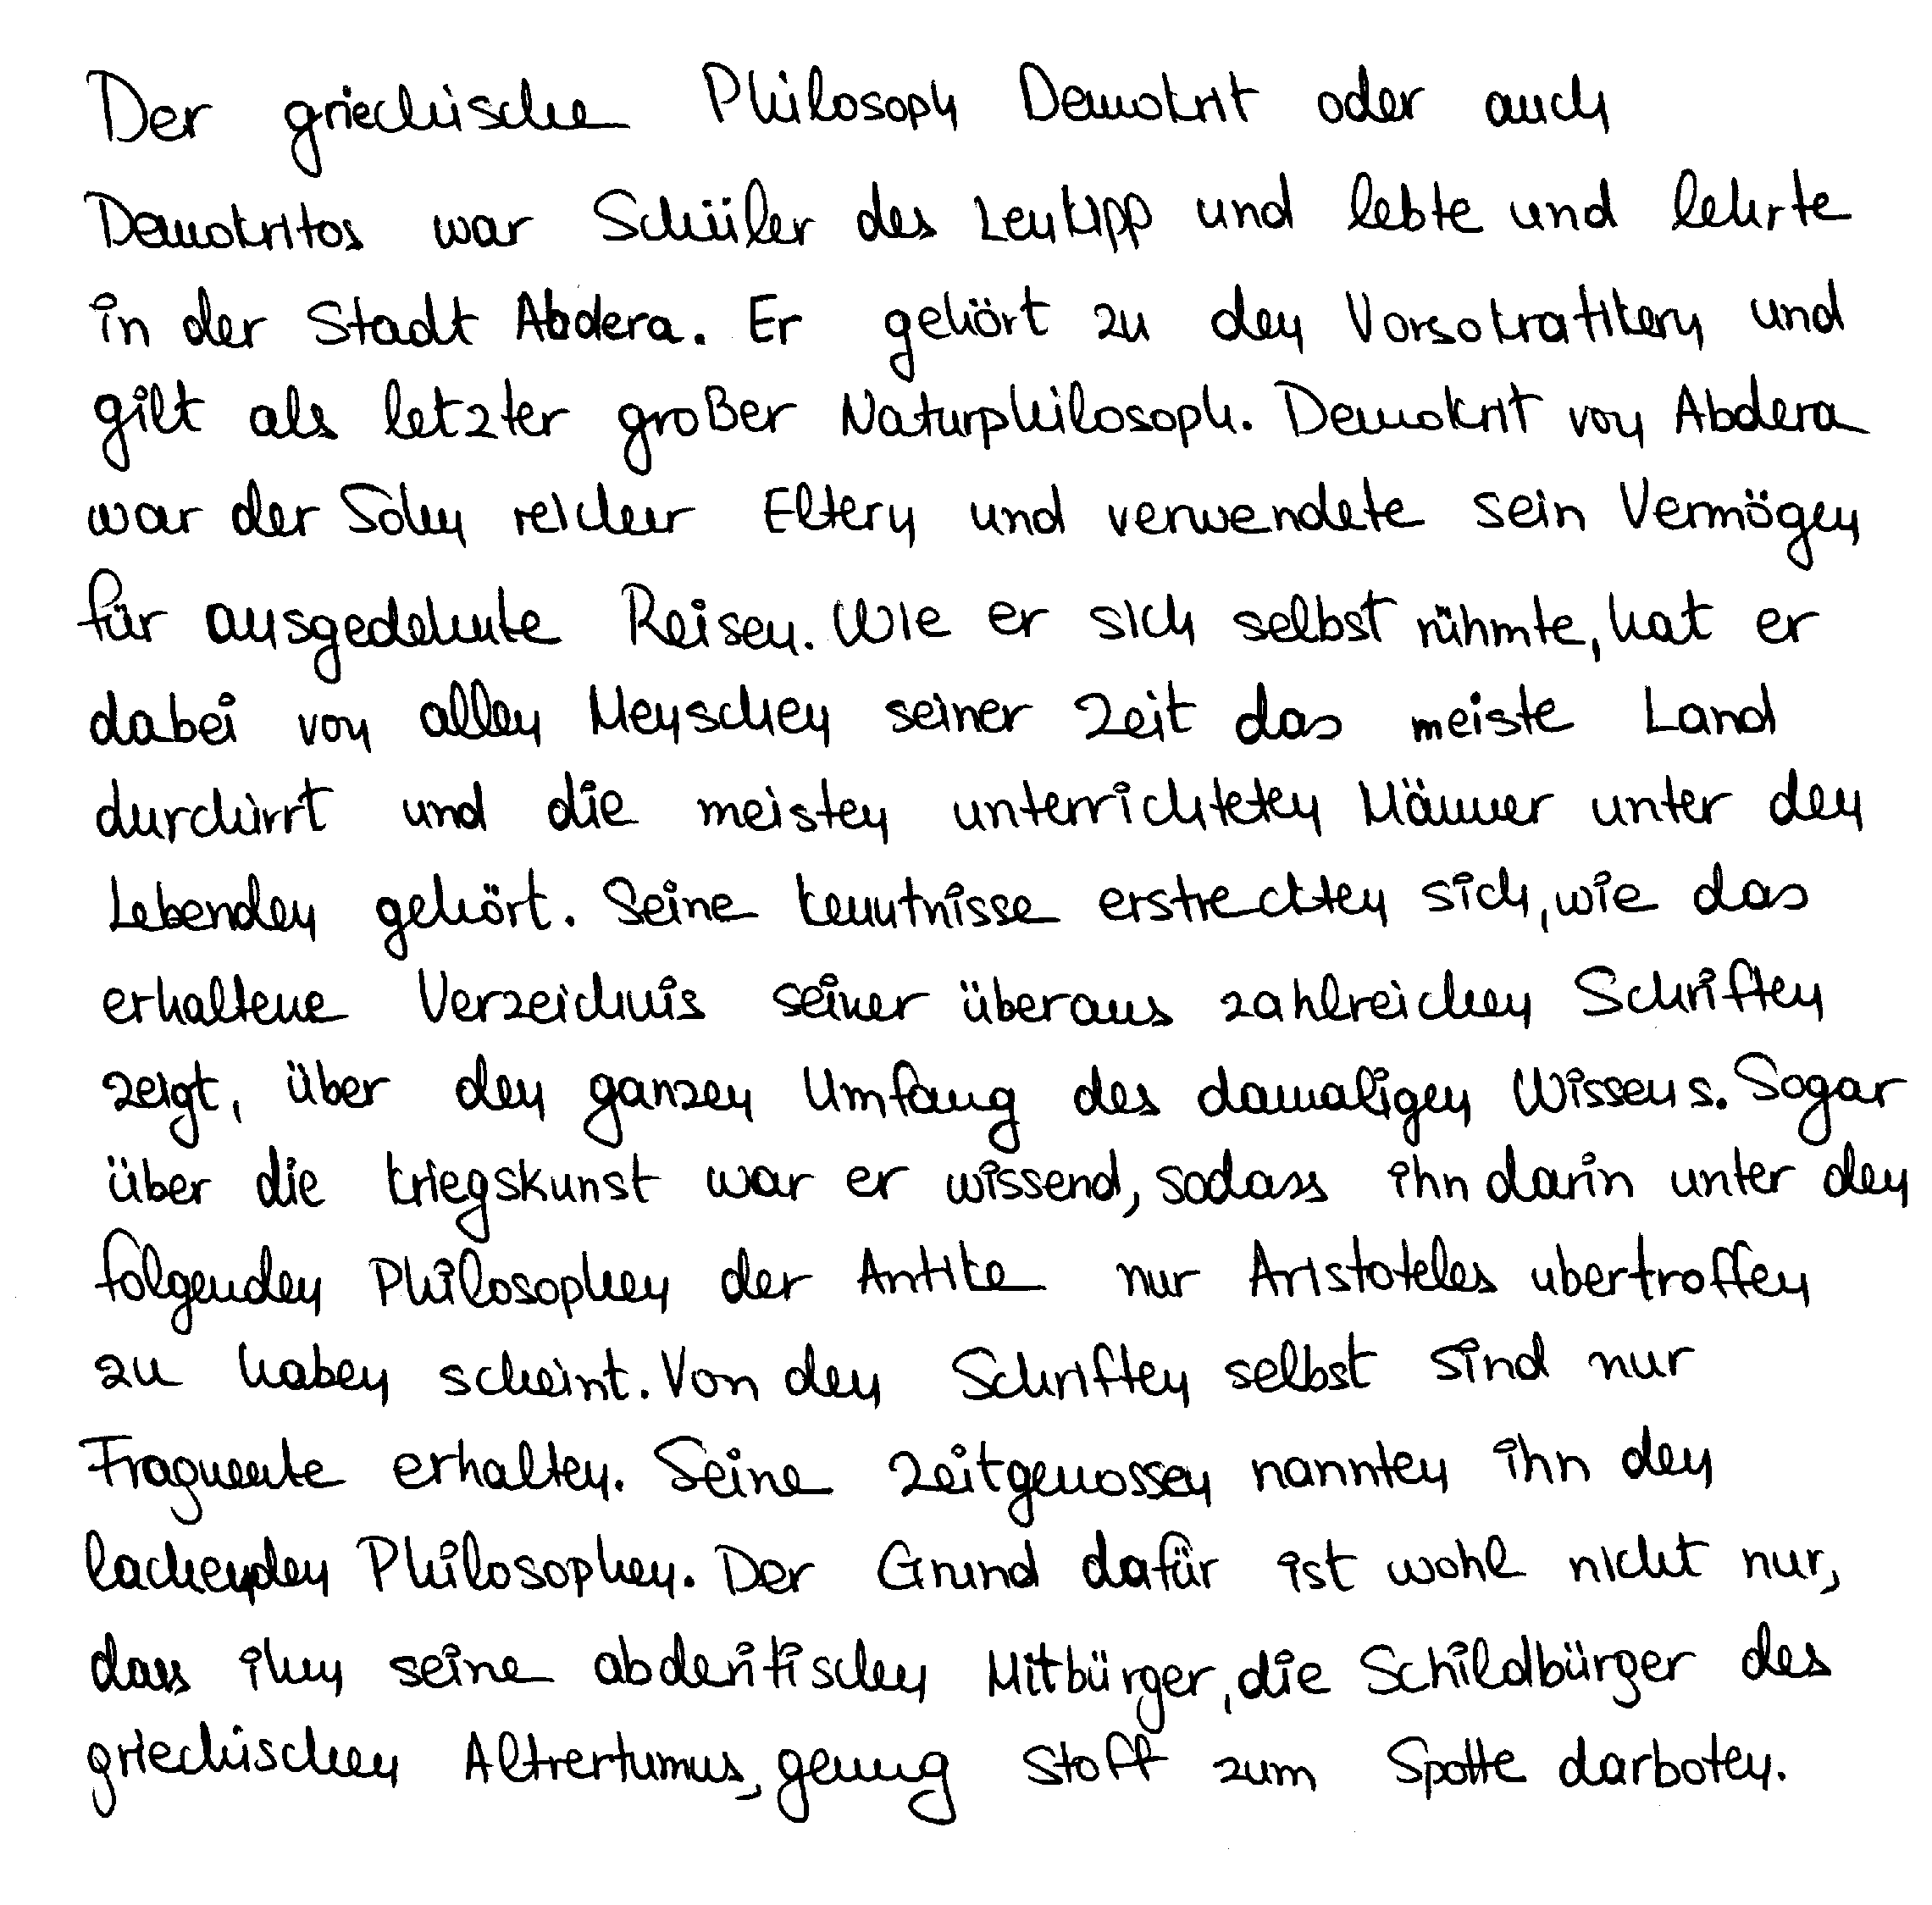 Der griechische Philosoph Demokrit oder auch
Demokritos war Schüler des Leukipp und lebte und lehrte
in der Stadt Abdera. Er gehört zu den Vorsokratikern und
gilt als letzter großer Naturphilosoph. Demokrit von Abdera
war der Sohn reicher Eltern und verwendete sein Vermögen
für ausgedehnte Reisen. Wie er sich selbst rühmte, hat er
dabei von allen Menschen seiner Zeit das meiste Land
durchirrt und die meisten unterrichteten Männer unter den
Lebenden gehört. Seine Kenntnisse erstreckten sich, wie das
erhaltene Verzeichnis seiner überaus zahlreichen Schriften
zeigt, über den ganzen Umfang des damaligen Wissens. Sogar
über die Kriegskunst war er wissend, sodass ihn darin unter den
folgenden Philosophen der Antike nur Aristoteles ubertroffen
zu haben scheint. Von den Schriften selbst sind nur
Fragmente erhalten. Seine Zeitgenossen nannten ihn den
lachenden Philosophen. Der Grund dafür ist wohl nicht nur,
dass ihm seine abderitischen Mitbürger, die Schildbürger des
griechischen Altrertumus, genug Stoff zum Spotte darboten.